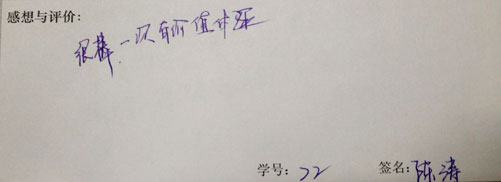 感想与评价:
很棒,一次有价值体验
学号: 22 签名: 陈涛